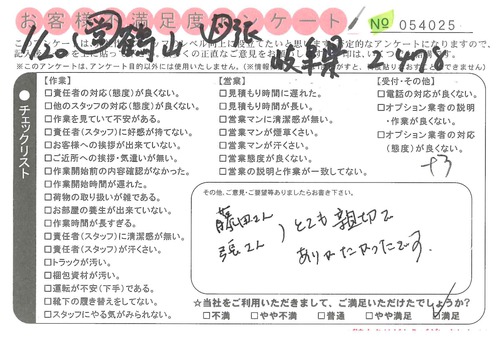 お客様満足度アンケート
No 054025
1/20 鶴山 張
岐阜県 2478
※このアンケートは、アンケート目的以外には使用いたしません。
チェックリスト
【作業】
□責任者の対応(態度)が良くない。
□他のスタッフの対応(態度)が良くない。
□作業を見ていて不安がある。
□責任者(スタッフ)に好感が持てない。
□お客様への挨拶が出来ていない。
□ご近所への挨拶・気遣いが無い。
□作業開始前の内容確認がなかった。
□作業開始時間が遅れた。
□荷物の取り扱いが雑である。
□お部屋の養生が出来ていない。
□作業時間が長すぎる。
□責任者(スタッフ)に清潔感が無い。
□責任者(スタッフ)が汗くさい。
□トラックが汚い。
□梱包資材が汚い。
□運転が不安(下手)である。
□靴下の履き替えをしてない。
□スタッフにやる気がみられない。
【営業】
□見積もり時間に遅れた。
□見積もり時間が長い。
□営業マンに清潔感が無い。
□営業マンが煙草くさい。
□営業マンが汗くさい。
□営業態度が良くない。
□営業の説明と作業が一致してない。
【受付・その他】
□電話の対応が良くない。
□オプション業者の説明
・作業が良くない。
□オプション業者の対応
(態度)が良くない。
その他、ご意見・ご要望等ありましたらお書き下さい。
藤田さん
張さん
とても親切で
ありがたかったです。
☆当社をご利用いただきまして、ご満足いただけたでしょうか?
□不満 □やや不満 □普通 □やや満足 □満足